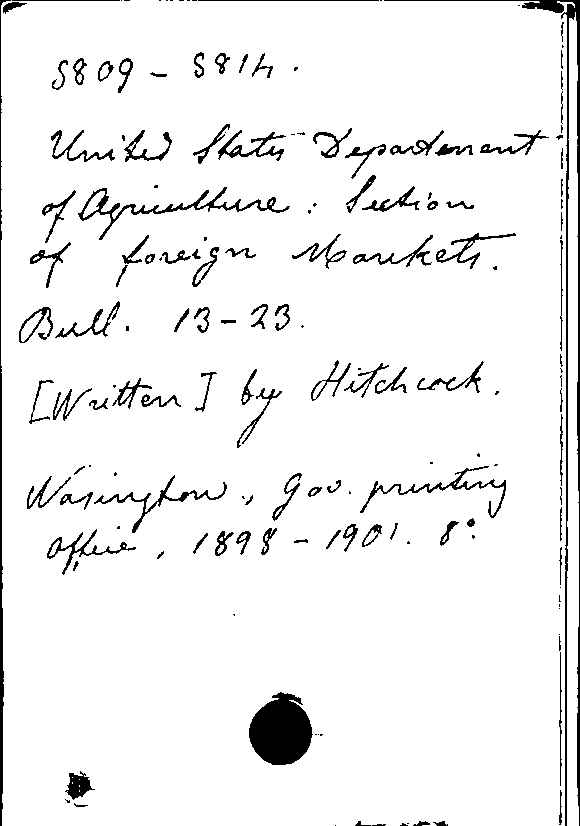 S809 – S814.
United States Department
of Agriculture : Section
of foreign Markets.
Bull. 13–23.
[Written] by Hitchcock.
Wasington, Gov. printing
office, 1898 – 1901. 8°.